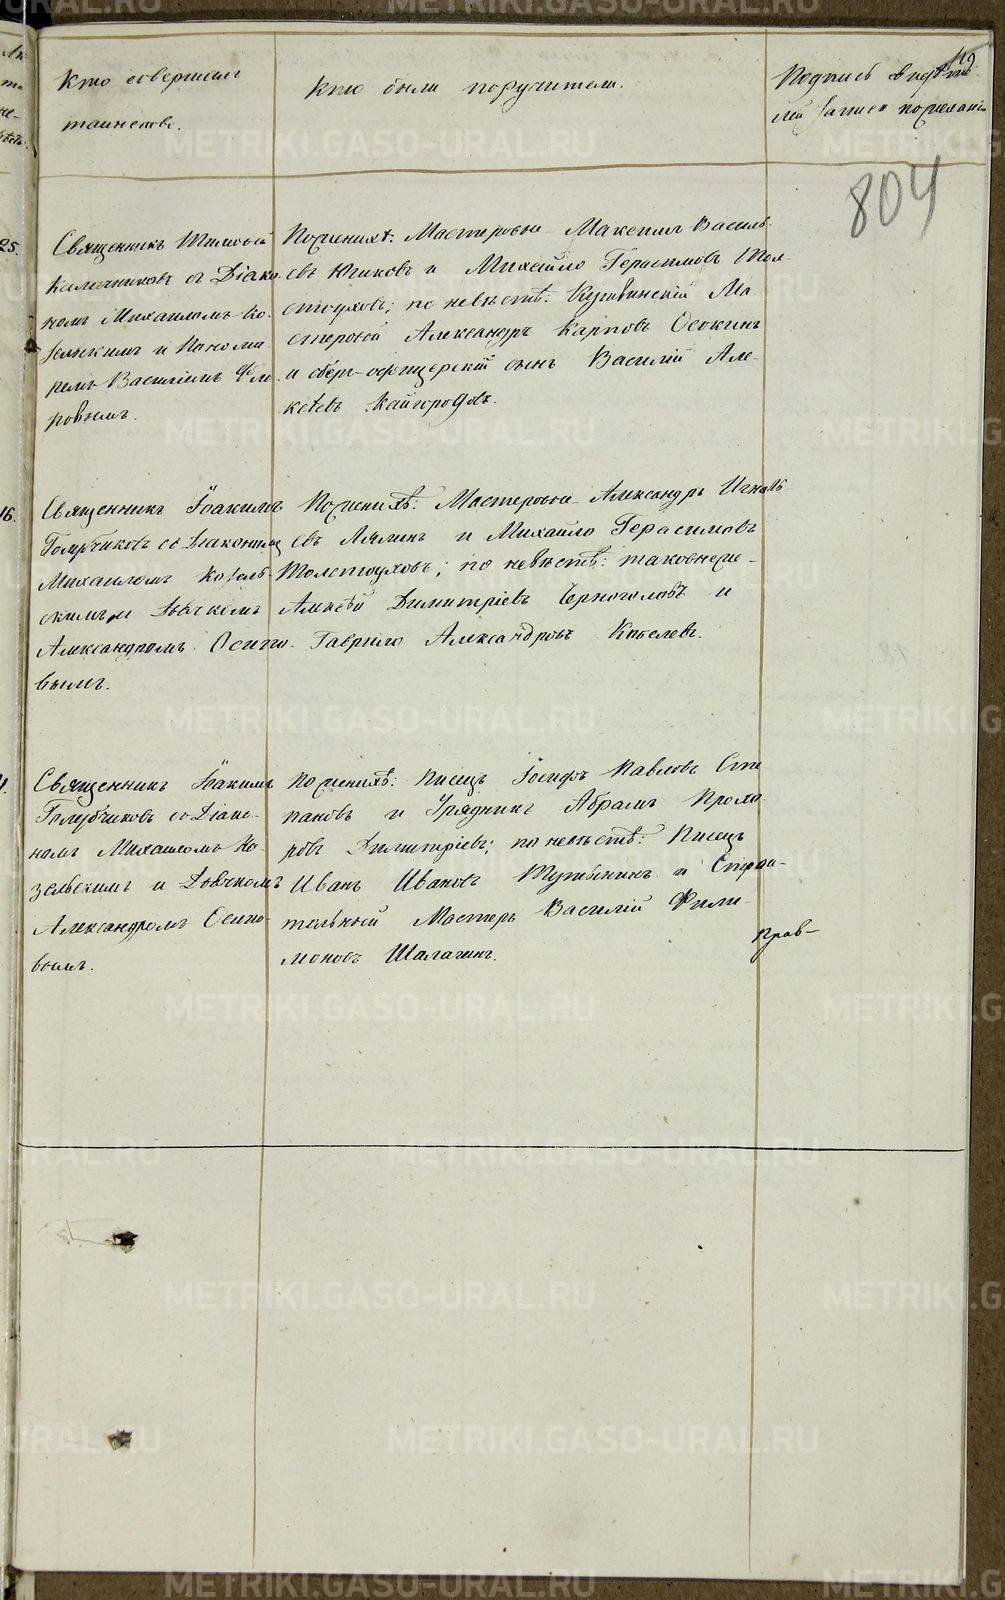 Кто совершалъ
таинство.
Кто были поручители.
Подпись свидѣте-
лей записи по желанію
804
25.
Священникъ Тимофей
Калачниковъ съ Діако-
номъ Михаиломъ Ко-
зельскимъ и Понома-
ремъ Василіемъ
ровымъ.
По женихѣ: Мастеровые Максимъ Василь-
евъ Южаковъ и Михайло Герасимовъ Тол-
стоуховъ; по невѣстѣ: Кушвинскій Ма-
стеровой Александръ Карповъ Осокинъ
и оберъ-офицерскій сынъ Василій Але-
ксѣевъ Кайгородовъ.
16.
Священникъ Іоакимъ
Голубчиковъ съ Діакономъ
Михаиломъ Козель-
скимъ и Дьячкомъ
Александромъ Осипо-
вымъ.
По женихѣ: Мастеровые Александръ Игнать-
евъ Лялинъ и Михайло Герасимовъ
Толстоуховъ; по невѣстѣ: таковые же
Алексѣй Димитріевъ Черноголовъ и
Гаврило Александровъ Киселевъ.
Священникъ Іоакимъ
Голубчиковъ съ Діако-
номъ Михаиломъ Ко-
зельскимъ и Дьячкомъ
Александромъ Осипо-
вымъ.
По женихѣ: Писецъ Іосифъ Павловъ Сте-
пановъ и Урядникъ Абрамъ Прохо-
ровъ Димитріевъ; по невѣстѣ: Писецъ
Иванъ Ивановъ и Строи-
тельный Мастеръ Василій Фили-
моновъ Шалагинъ.
Прав-
METRIKI.GASO-URAL.RU